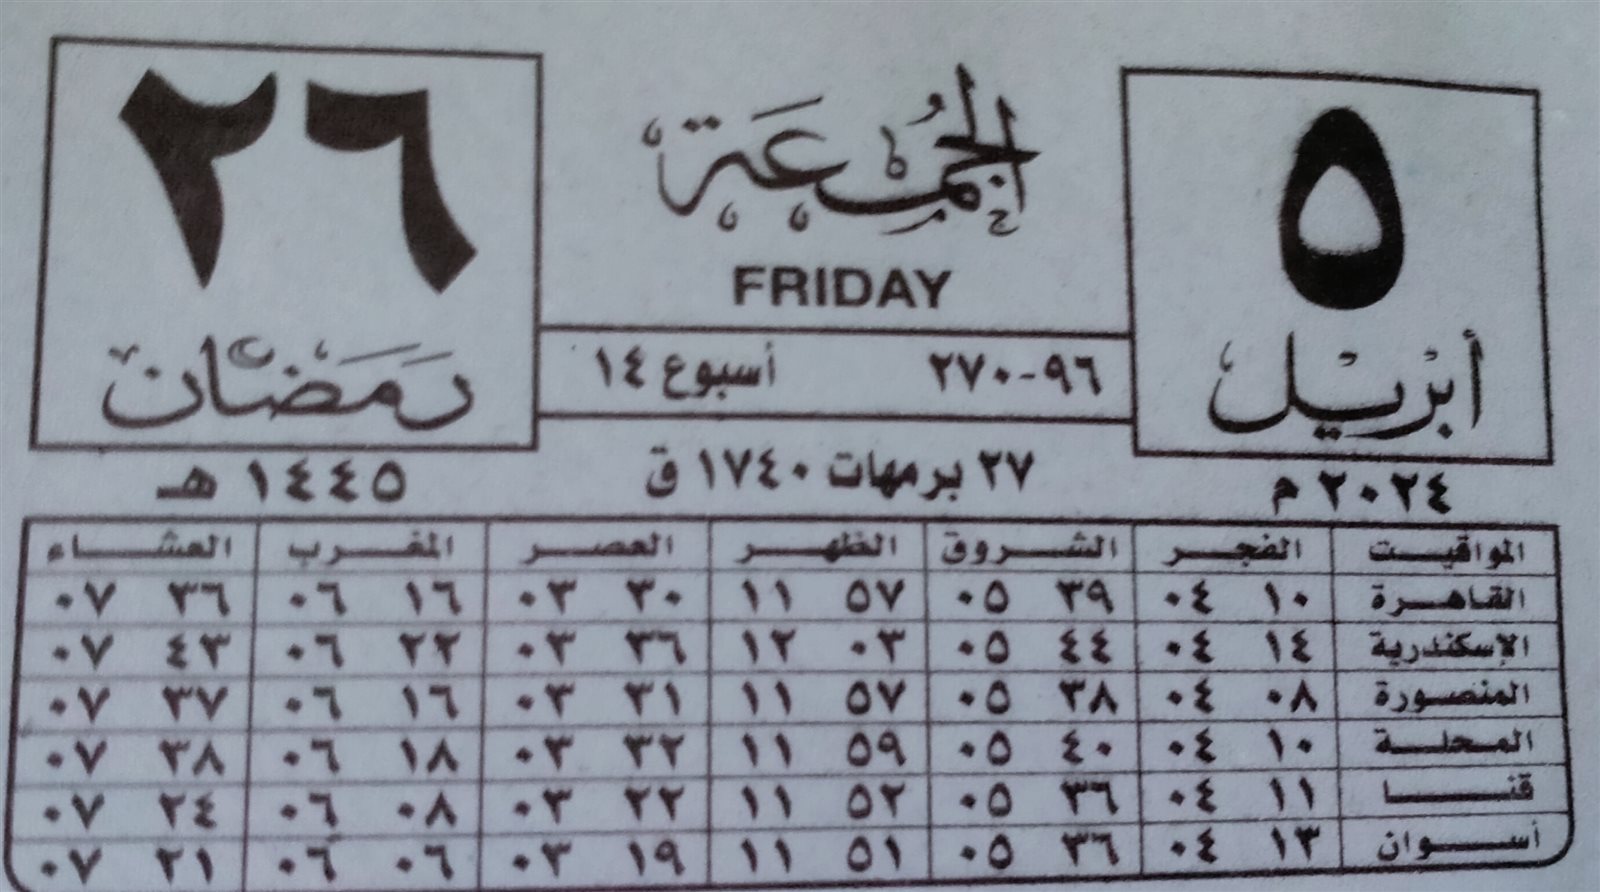 الجمعة
FRIDAY
٥
أبريل
٢٦
رمضان
٩٦-٢٧٠ أسبوع ١٤
٢٠٢٤ م
٢٧ برمهات ١٧٤٠ ق
١٤٤٥ هـ
المواقيت الفجر الشروق الظهر العصر المغرب العشاء
القاهرة ١٠ ٠٤ ٣٩ ٠٥ ٥٧ ١١ ٣٠ ٠٣ ١٦ ٠٦ ٣٦ ٠٧
الإسكندرية ١٤ ٠٤ ٤٤ ٠٥ ٠٣ ١٢ ٣٦ ٠٣ ٢٢ ٠٦ ٤٣ ٠٧
المنصورة ٠٨ ٠٤ ٣٨ ٠٥ ٥٧ ١١ ٣١ ٠٣ ١٦ ٠٦ ٣٧ ٠٧
المحلة ١٠ ٠٤ ٤٠ ٠٥ ٥٩ ١١ ٣٢ ٠٣ ١٨ ٠٦ ٣٨ ٠٧
قنا ١١ ٠٤ ٣٦ ٠٥ ٥٢ ١١ ٢٢ ٠٣ ٠٨ ٠٦ ٢٤ ٠٧
أسوان ١٣ ٠٤ ٣٦ ٠٥ ٥١ ١١ ١٩ ٠٣ ٠٦ ٠٦ ٢١ ٠٧